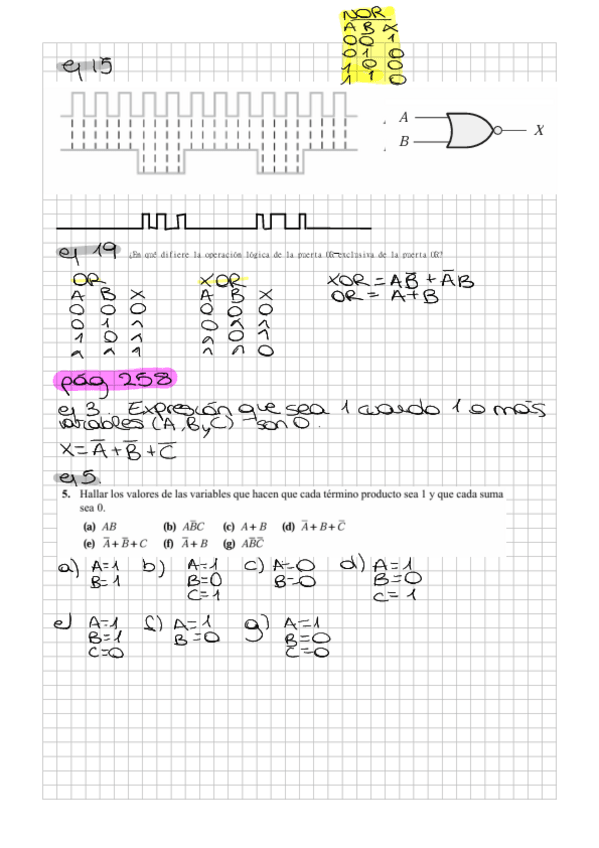 NOR
A B X
0 0 1
0 1 0
1 0 0
1 1 0
ej 15
A
B
X
ej 19 ¿En qué difiere la operación lógica de la puerta OR-exclusiva de la puerta OR?
OR XOR XOR = AB̅ + A̅B
A B X A B X OR = A+B
0 0 0 0 0 0
0 1 1 0 1 1
1 0 1 1 0 1
1 1 1 1 1 0
pág 258
ej 3. Expresión que sea 1 cuando 1 o más
variables (A, B y C) son 0.
X = A̅ + B̅ + C̅
ej 5.
5. Hallar los valores de las variables que hacen que cada término producto sea 1 y que cada suma
sea 0.
(a) AB (b) AB̅C (c) A + B (d) A̅ + B + C̅
(e) A̅ + B̅ + C (f) A̅ + B (g) AB̅C̅
a) A=1 b) A=1 c) A=0 d) A=1
B=1 B=0 B=0 B=0
C=1 C=1
e) A=1 f) A=1 g) A=1
B=1 B=0 B=0
C=0 C=0